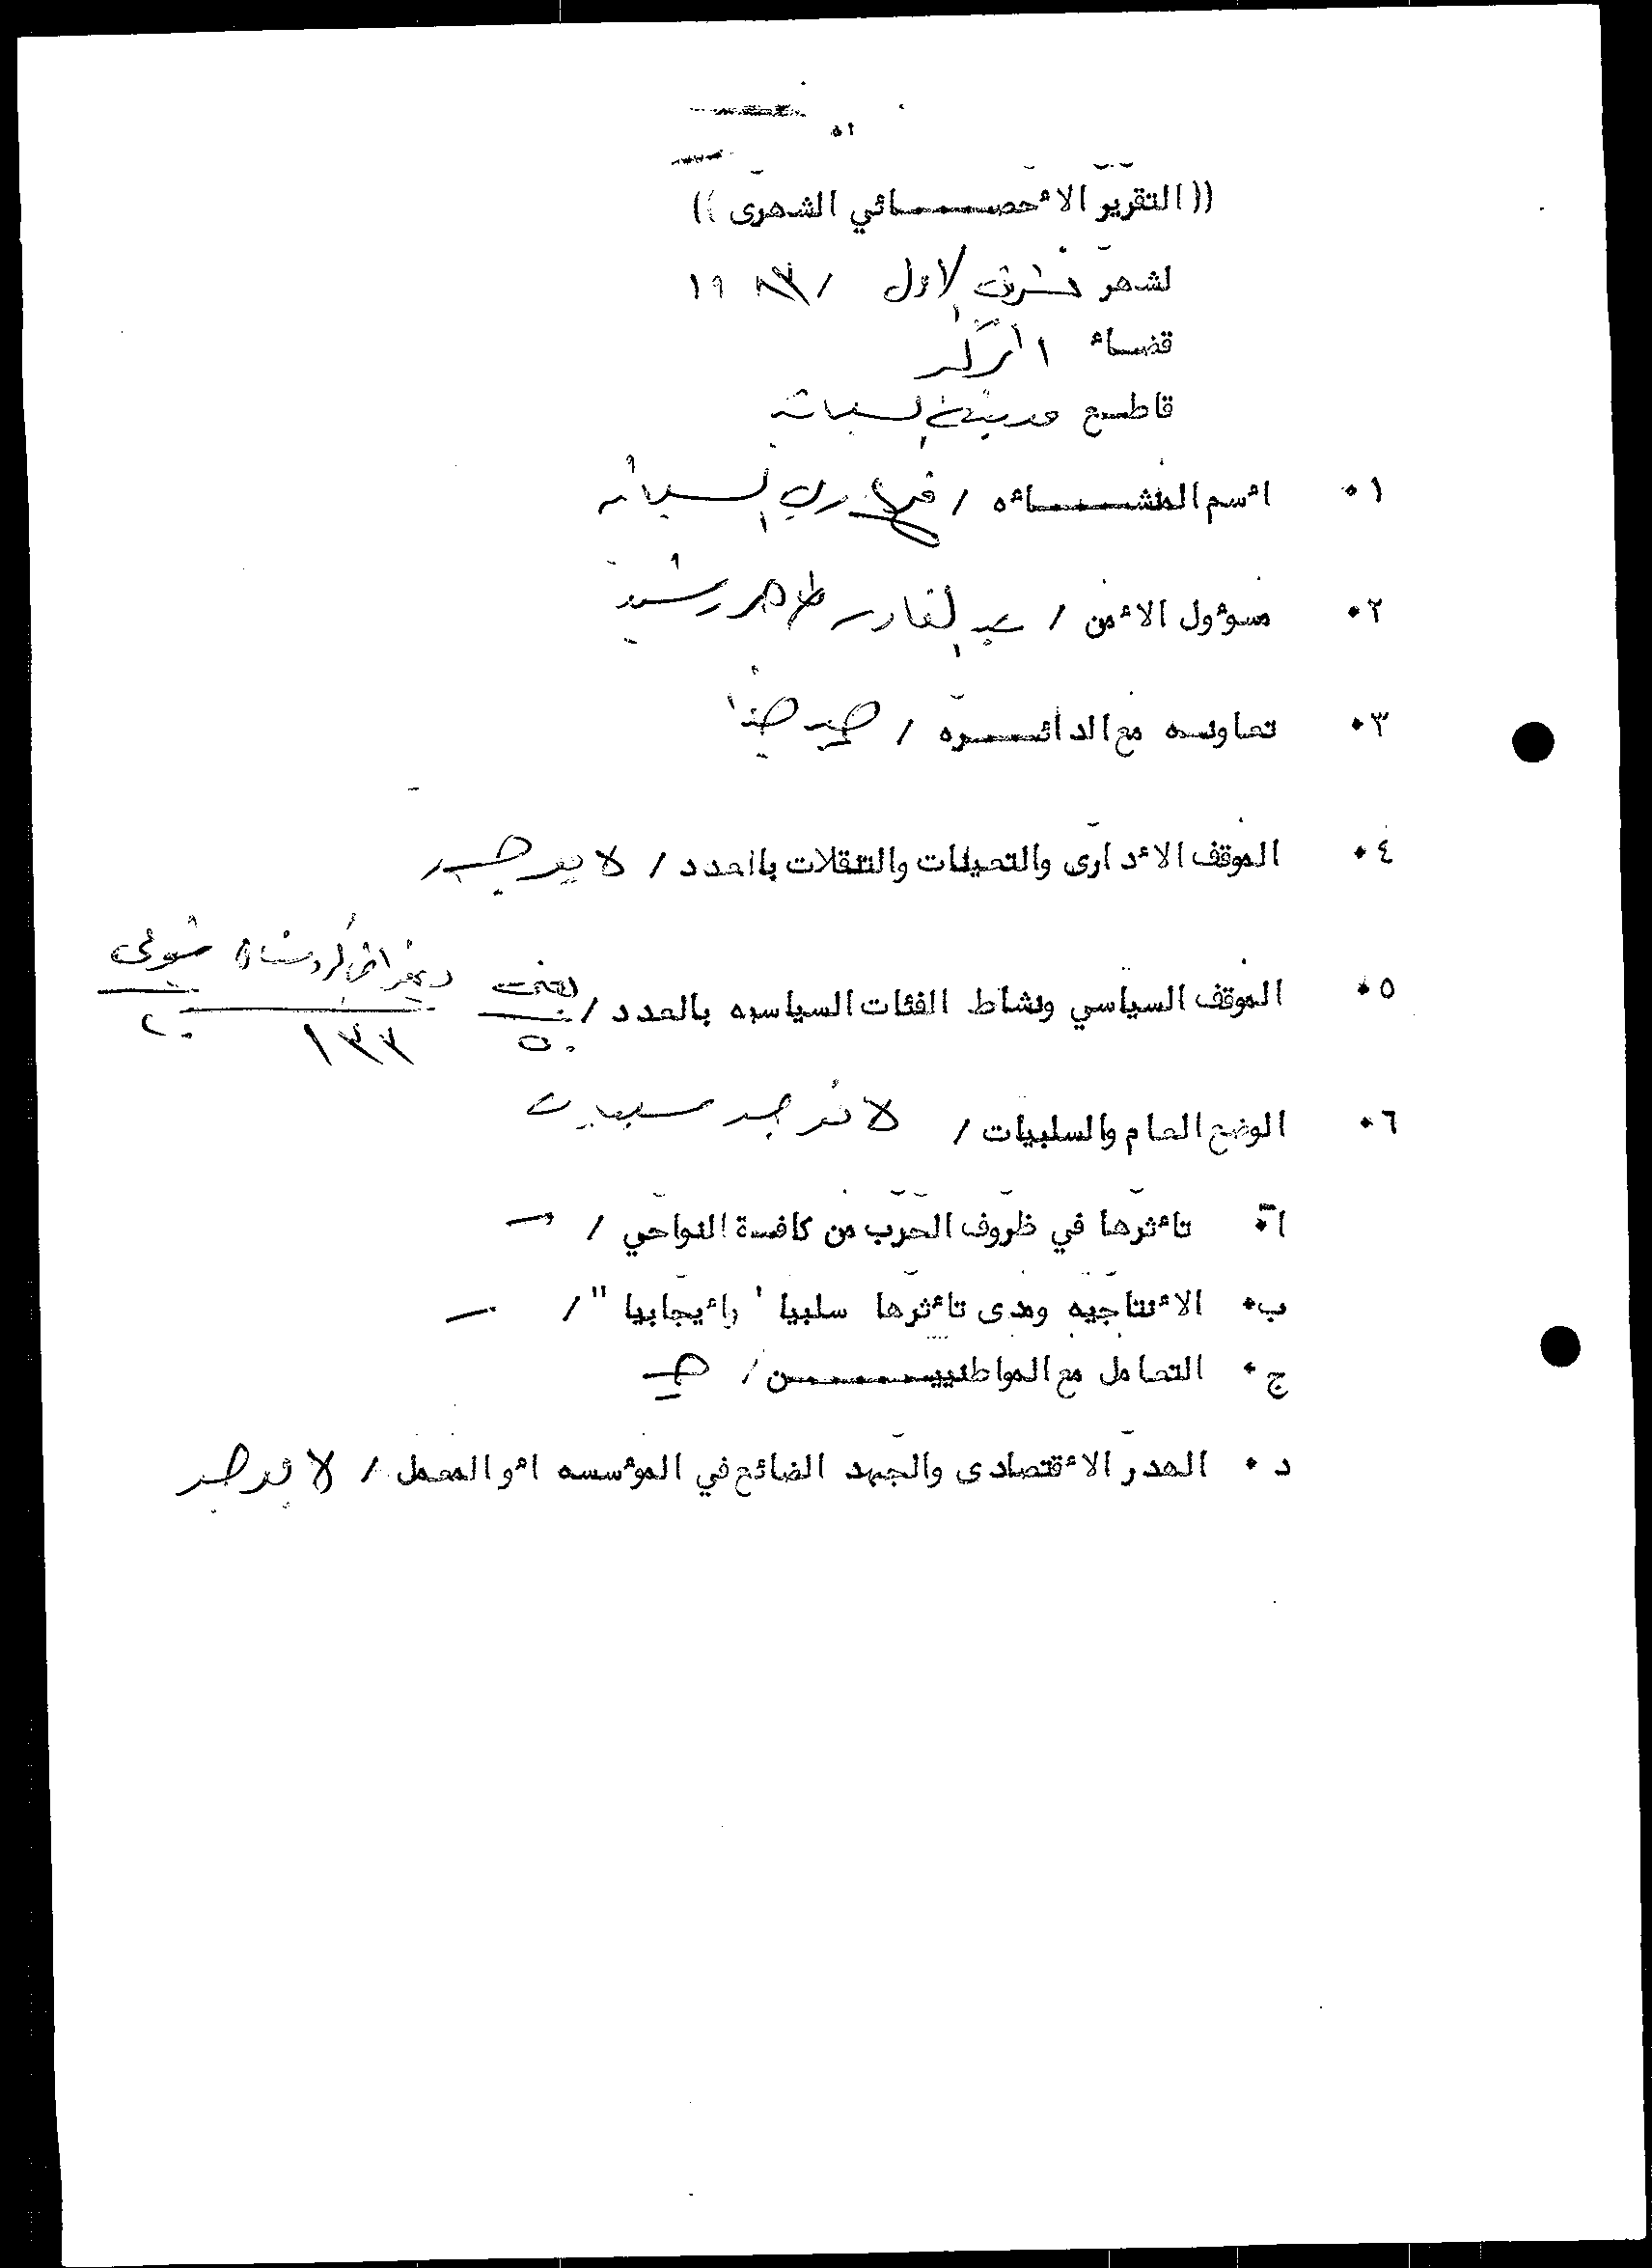 ((التقرير الاٴحصـــــائي الشهرى))
لشهر تشرين الاول / ١٩٨٣
قضــاء المركز
قاطــع مدينة السليمانية
١٠ اٴسم المنشـــــاٴه / السليمانية
٢٠ مسؤول الاٴمن / عبدالقادر طاهر رشيد
٣٠ تعاونــه مع الدائـــــره / جيد جدا
٤٠ الموقف الاٴدارى والتعينات والتنقلات بالعدد / لا يوجد
٥٠ الموقف السياسي ونشاط الفئات السياسيه بالعدد / بعث ٥٠ ديمقراطي كردستاني ١٣٣ شيوعي ٢٠
٦٠ الوضع العام والسلبيات / لا توجد سلبيات
ا٠ تاٴثرها في ظروف الحرب من كافــة النواحي / —
ب٠ الاٴنتاجيه ومدى تاٴثرها سلبيا ' واٴيجابيا " / —
ج٠ التعامل مع المواطنيــــــن / جيد
د٠ الهدر الاٴقتصادى والجهد الضائع في المؤسسه اٴو المعمل / لا يوجد